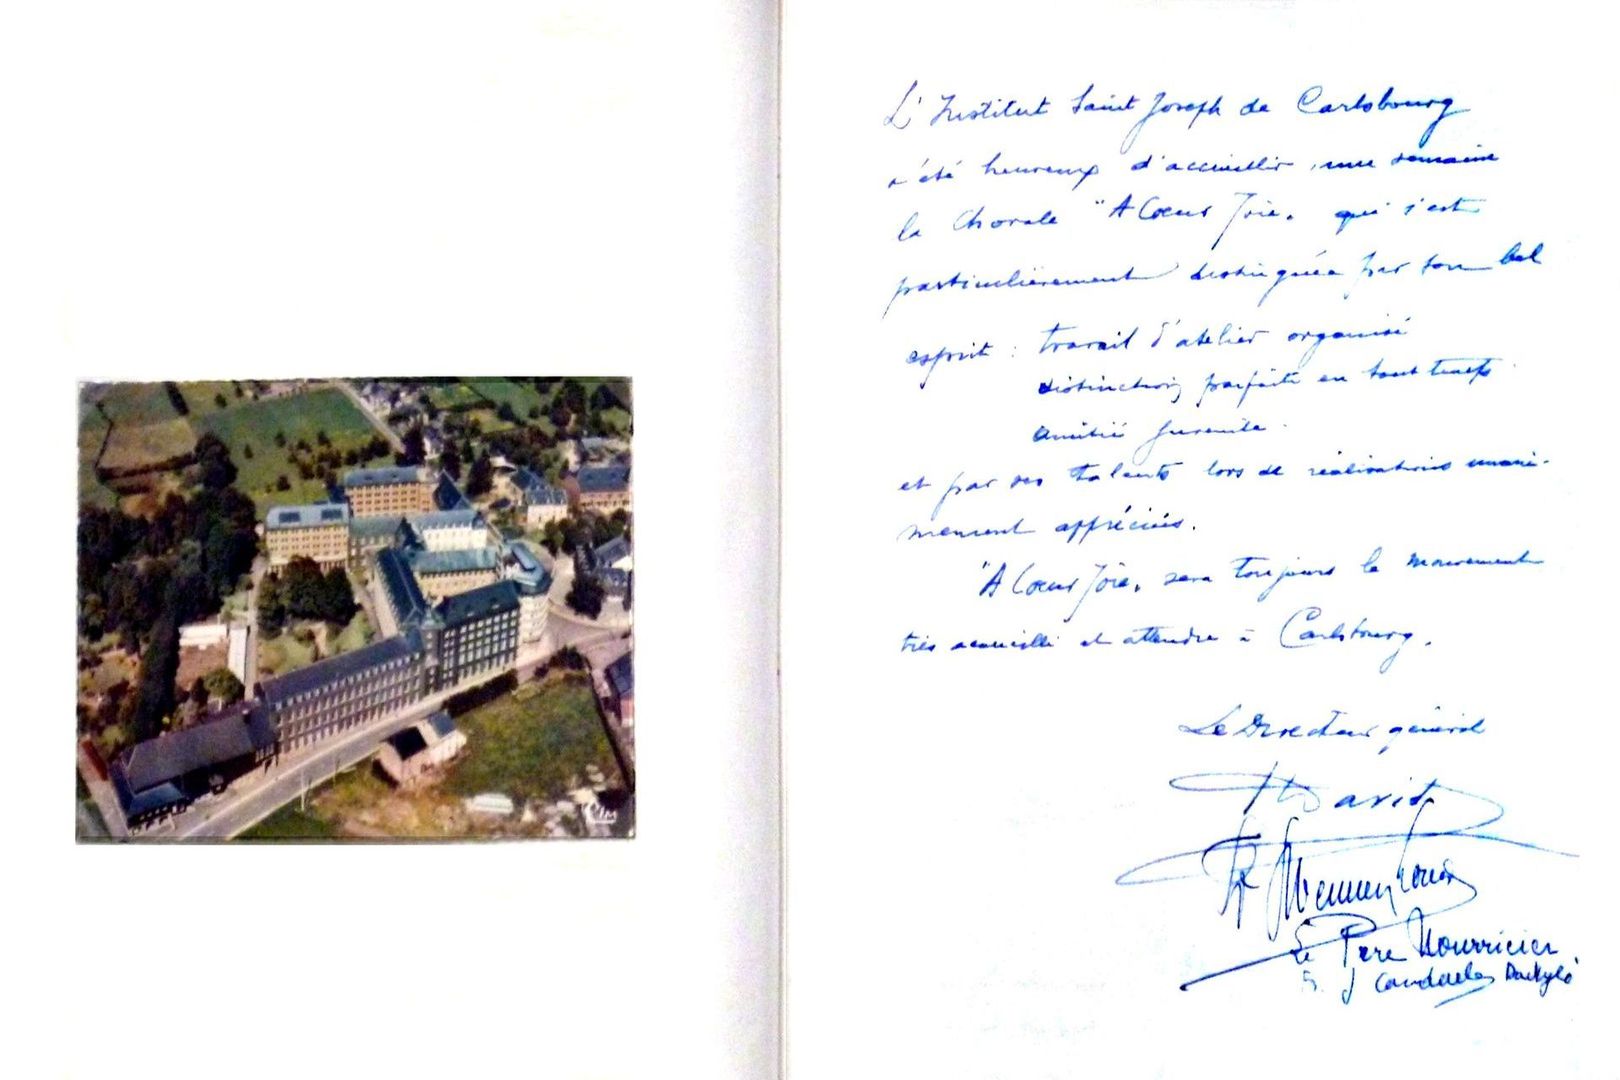 L'Institut Saint Joseph de Carlsbourg
a été heureux d'accueillir une semaine
la Chorale "A Cœur Joie" qui s'est
particulièrement distinguée par son bel
esprit : travail d'atelier organisé
distinction parfaite en tout temps
amitié juvénile.
et par ses talents lors de réalisations unani-
mement appréciées.
"A Cœur Joie" sera toujours le mouvement
très accueilli et attendu à Carlsbourg.
Le Directeur général
David
Le Père Nourricier